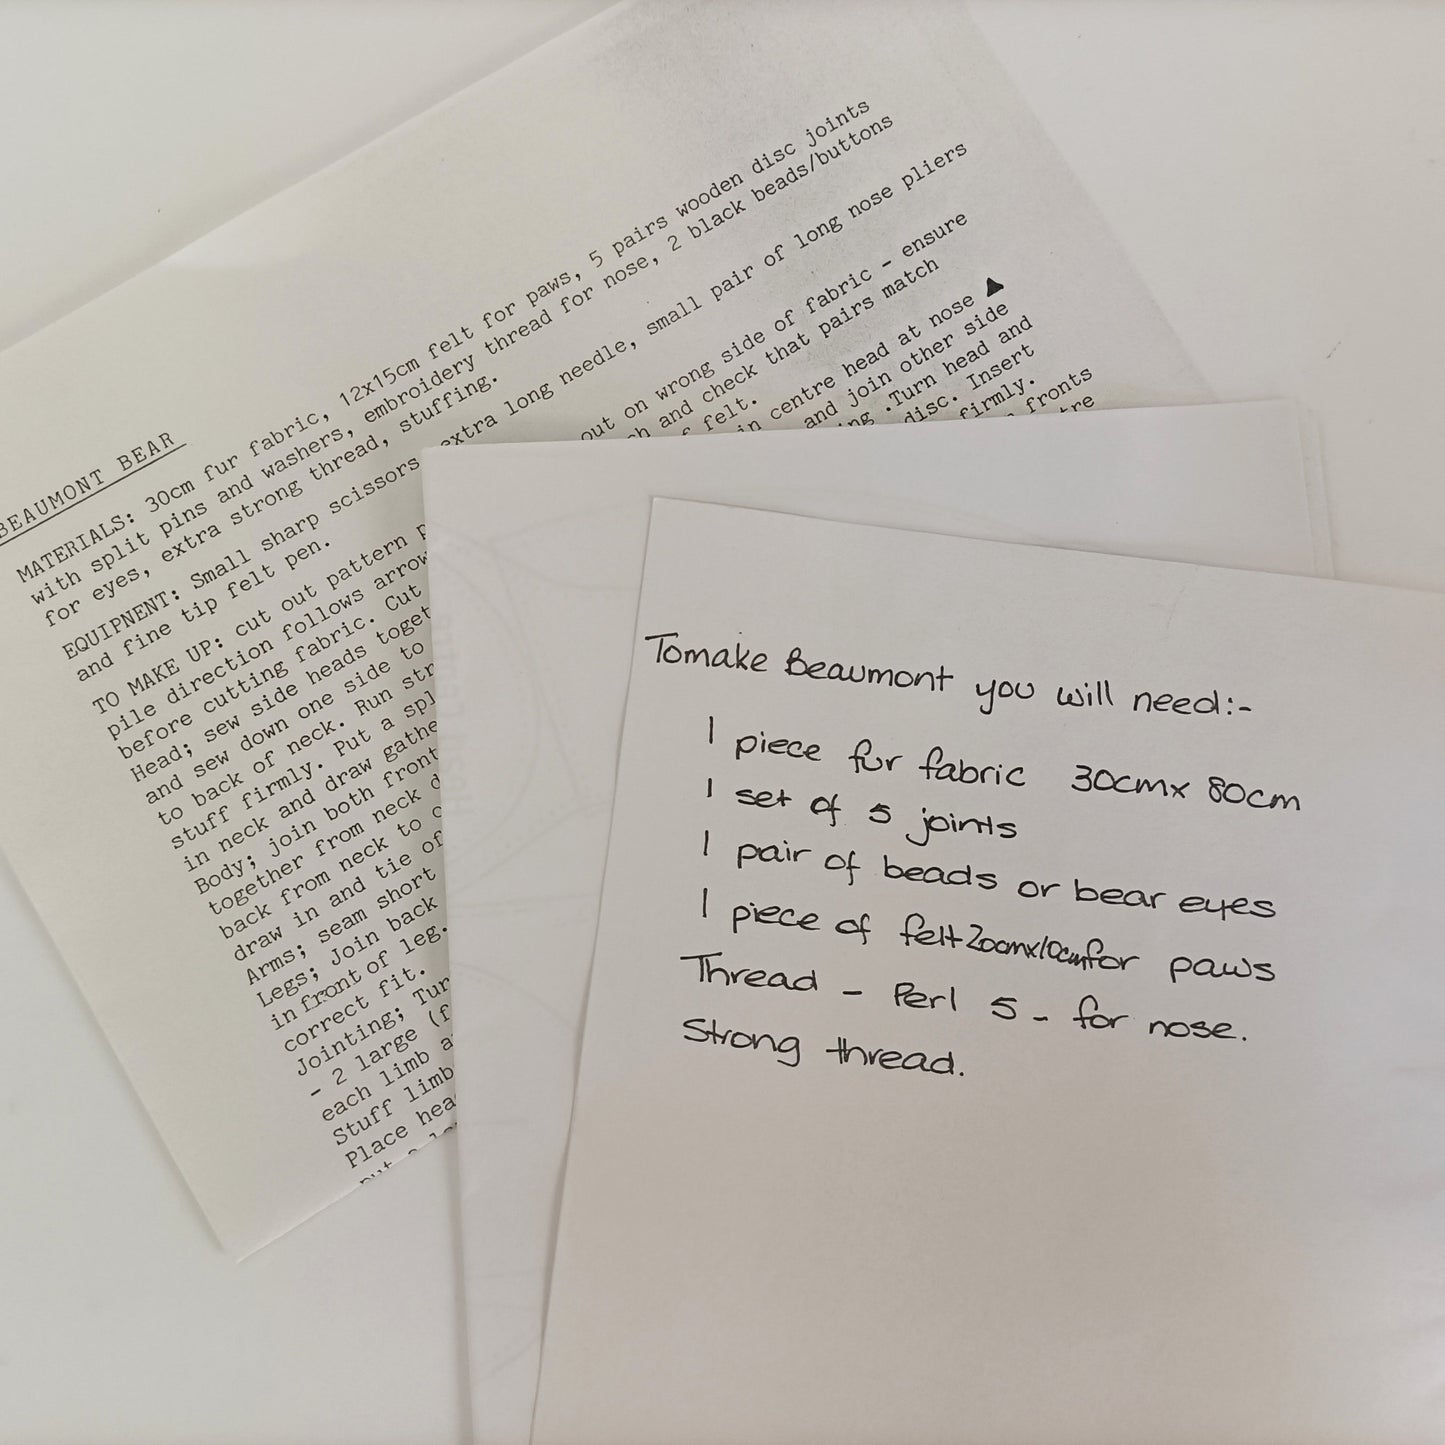 BEAUMONT BEAR
MATERIALS: 30cm fur fabric, 12x15cm felt for paws, 5 pairs wooden disc joints
with split pins and washers, embroidery thread for nose, 2 black beads/buttons
for eyes, extra strong thread, stuffing.
EQUIPNENT: Small sharp scissors, extra long needle, small pair of long nose pliers
and fine tip felt pen.
TO MAKE UP: cut out pattern out on wrong side of fabric - ensure
pile direction follows arrow and check that pairs match
before cutting fabric. Cut felt.
Head; sew side heads in centre head at nose
and sew down one side to and join other side
to back of neck. Run .Turn head and
stuff firmly. Put a disc. Insert
in neck and draw firmly.
Body; join both front fronts
together from neck
back from neck to
draw in and tie of
Arms; seam short
Legs; Join back
in front of leg.
correct fit.
Jointing;
- 2 large
each limb
Stuff limb
Place
Tomake Beaumont you will need:-
1 piece fur fabric 30cmx 80cm
1 set of 5 joints
1 pair of beads or bear eyes
1 piece of felt 20cmx10cm for paws
Thread - Perl 5 - for nose.
Strong thread.